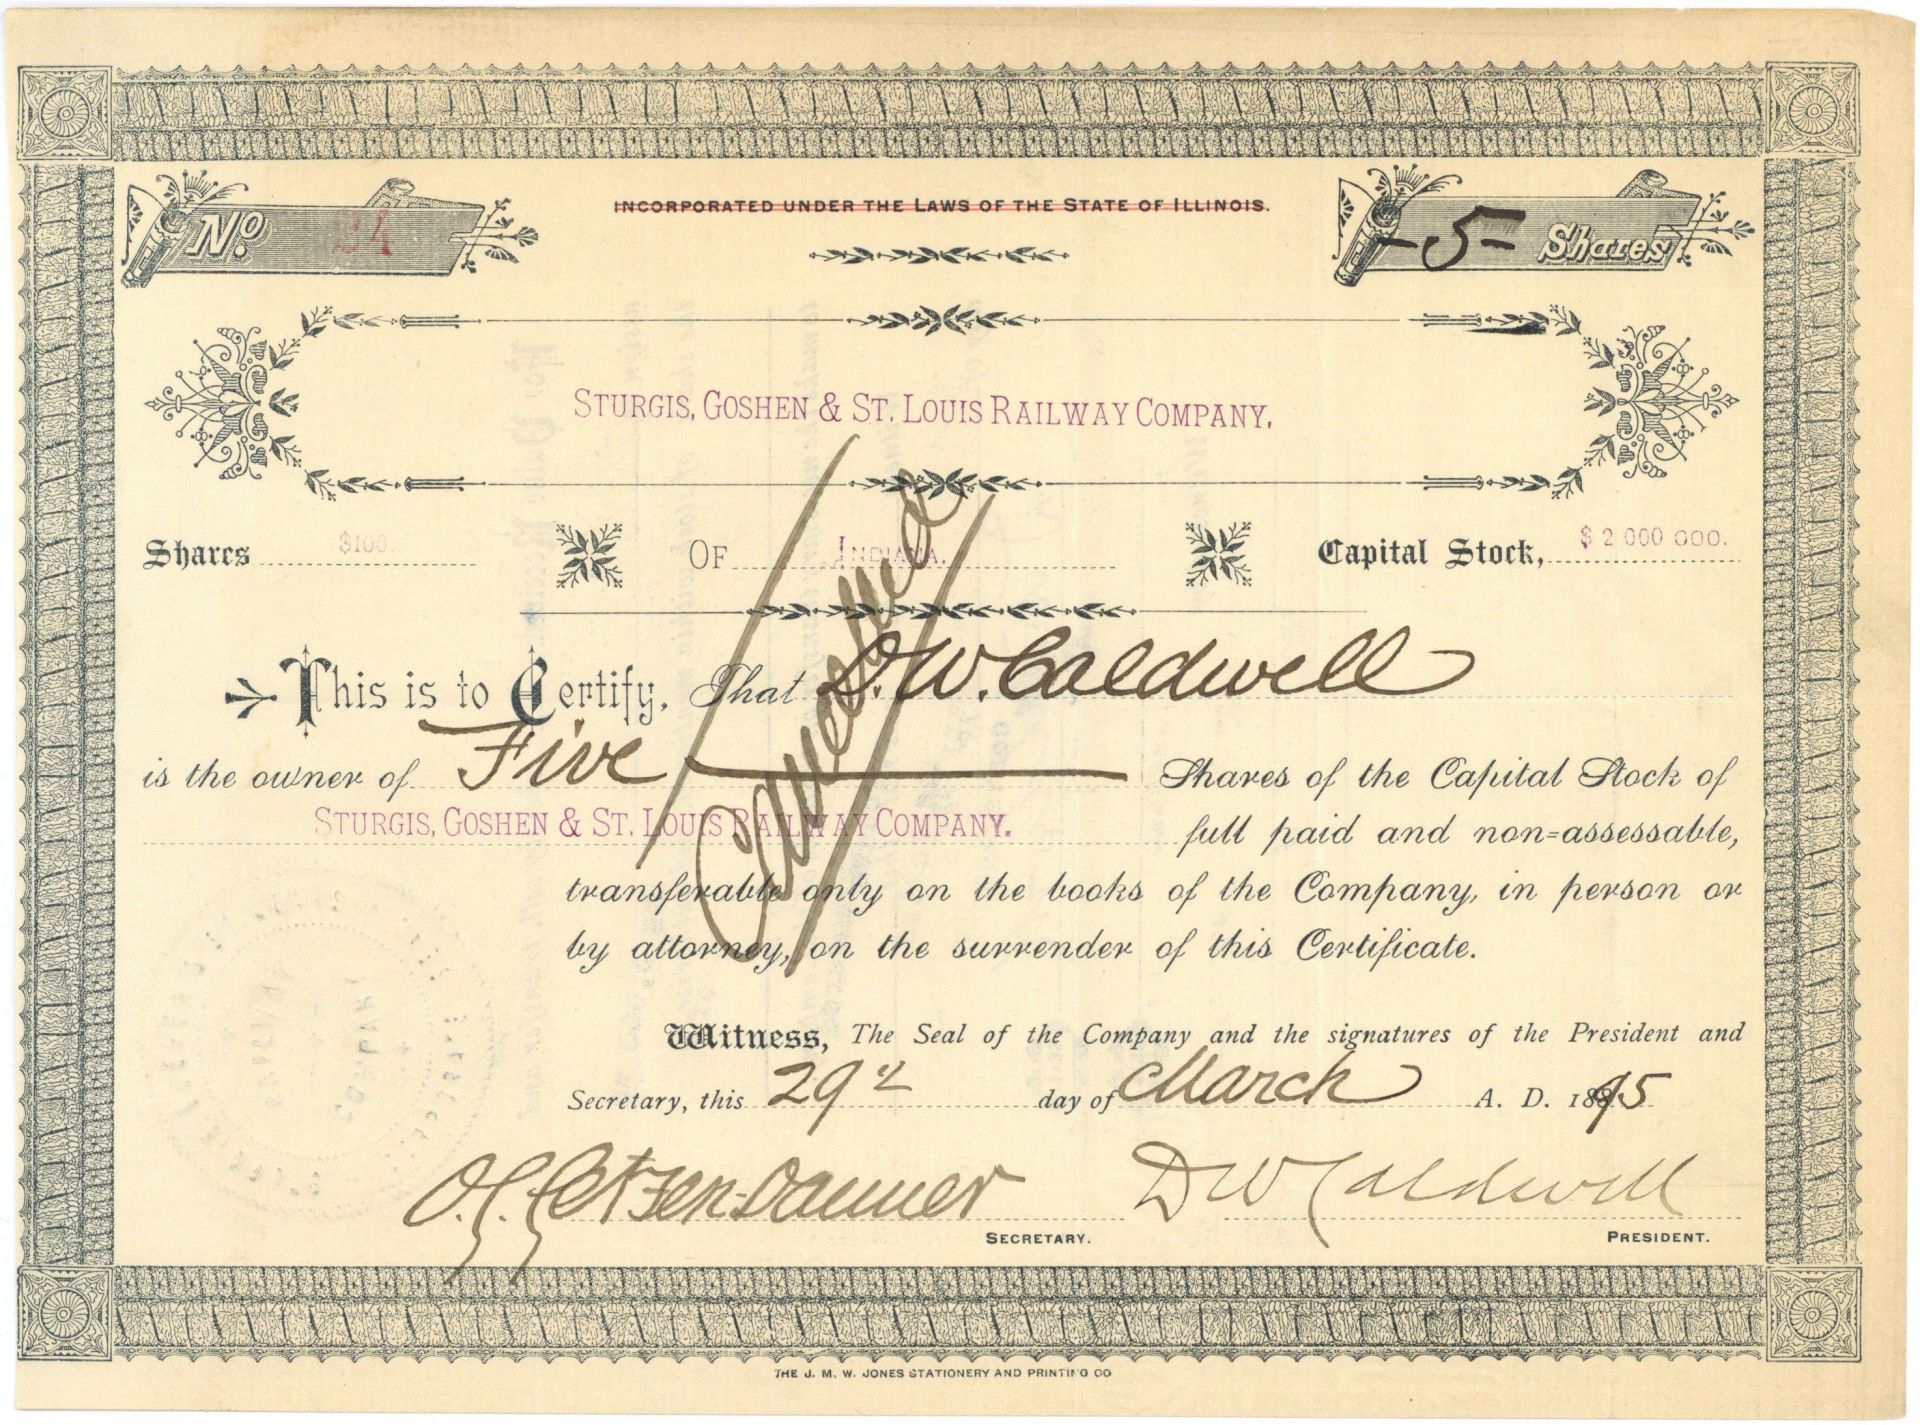 INCORPORATED UNDER THE LAWS OF THE STATE OF ILLINOIS.
No. 24
-5- Shares
STURGIS, GOSHEN & ST. LOUIS RAILWAY COMPANY,
Shares $100. OF INDIANA. Capital Stock, $2 000 000.
Cancelled
This is to Certify, That D. W. Caldwell
is the owner of Five Shares of the Capital Stock of
STURGIS, GOSHEN & ST. LOUIS RAILWAY COMPANY. full paid and non=assessable,
transferable only on the books of the Company, in person or
by attorney, on the surrender of this Certificate.
Witness, The Seal of the Company and the signatures of the President and
Secretary, this 29th day of March A. D. 1895
D W Caldwell
SECRETARY. PRESIDENT.
THE J. M. W. JONES STATIONERY AND PRINTING CO